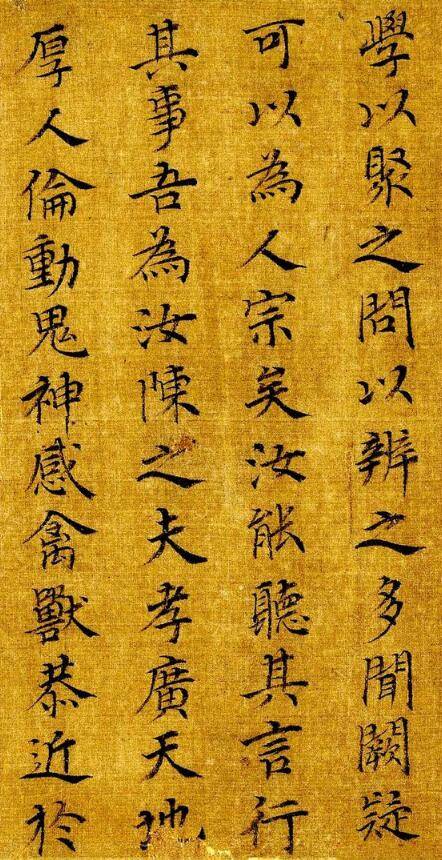 學以聚之問以辨之多聞闕疑
可以為人宗矣汝能聽其言行
其事吾為汝陳之夫孝廣天地
厚人倫動鬼神感禽獸恭近於